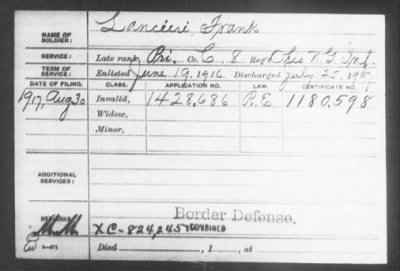 NAME OF SOLDIER: Lancieri, Frank
SERVICE: Late rank, Pri. Co. C, 8 Reg't Ohio N. G. Inf.
TERM OF SERVICE: Enlisted June 19, 1916. Discharged 25, 1917
DATE OF FILING. CLASS. APPLICATION NO. LAW. CERTIFICATE NO.
1917, Aug 30 Invalid, 1428,686 R.E 1180,598
Widow,
Minor,
ADDITIONAL SERVICES:
Border Defense.
REMARKS: XC-824,245 COMBINED
Died , 1 , at